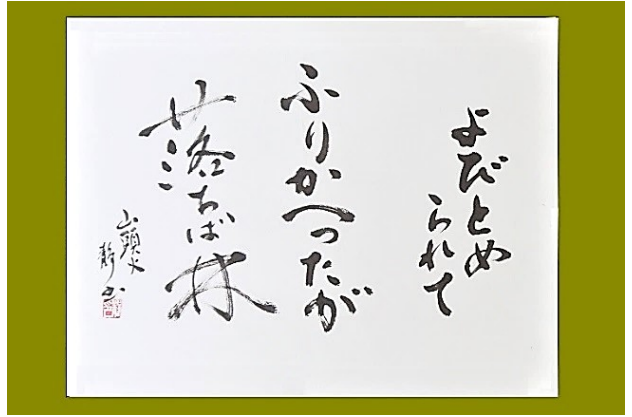 よびとめ
られて
ふりかへつたが
落ちば林
山頭火
静書